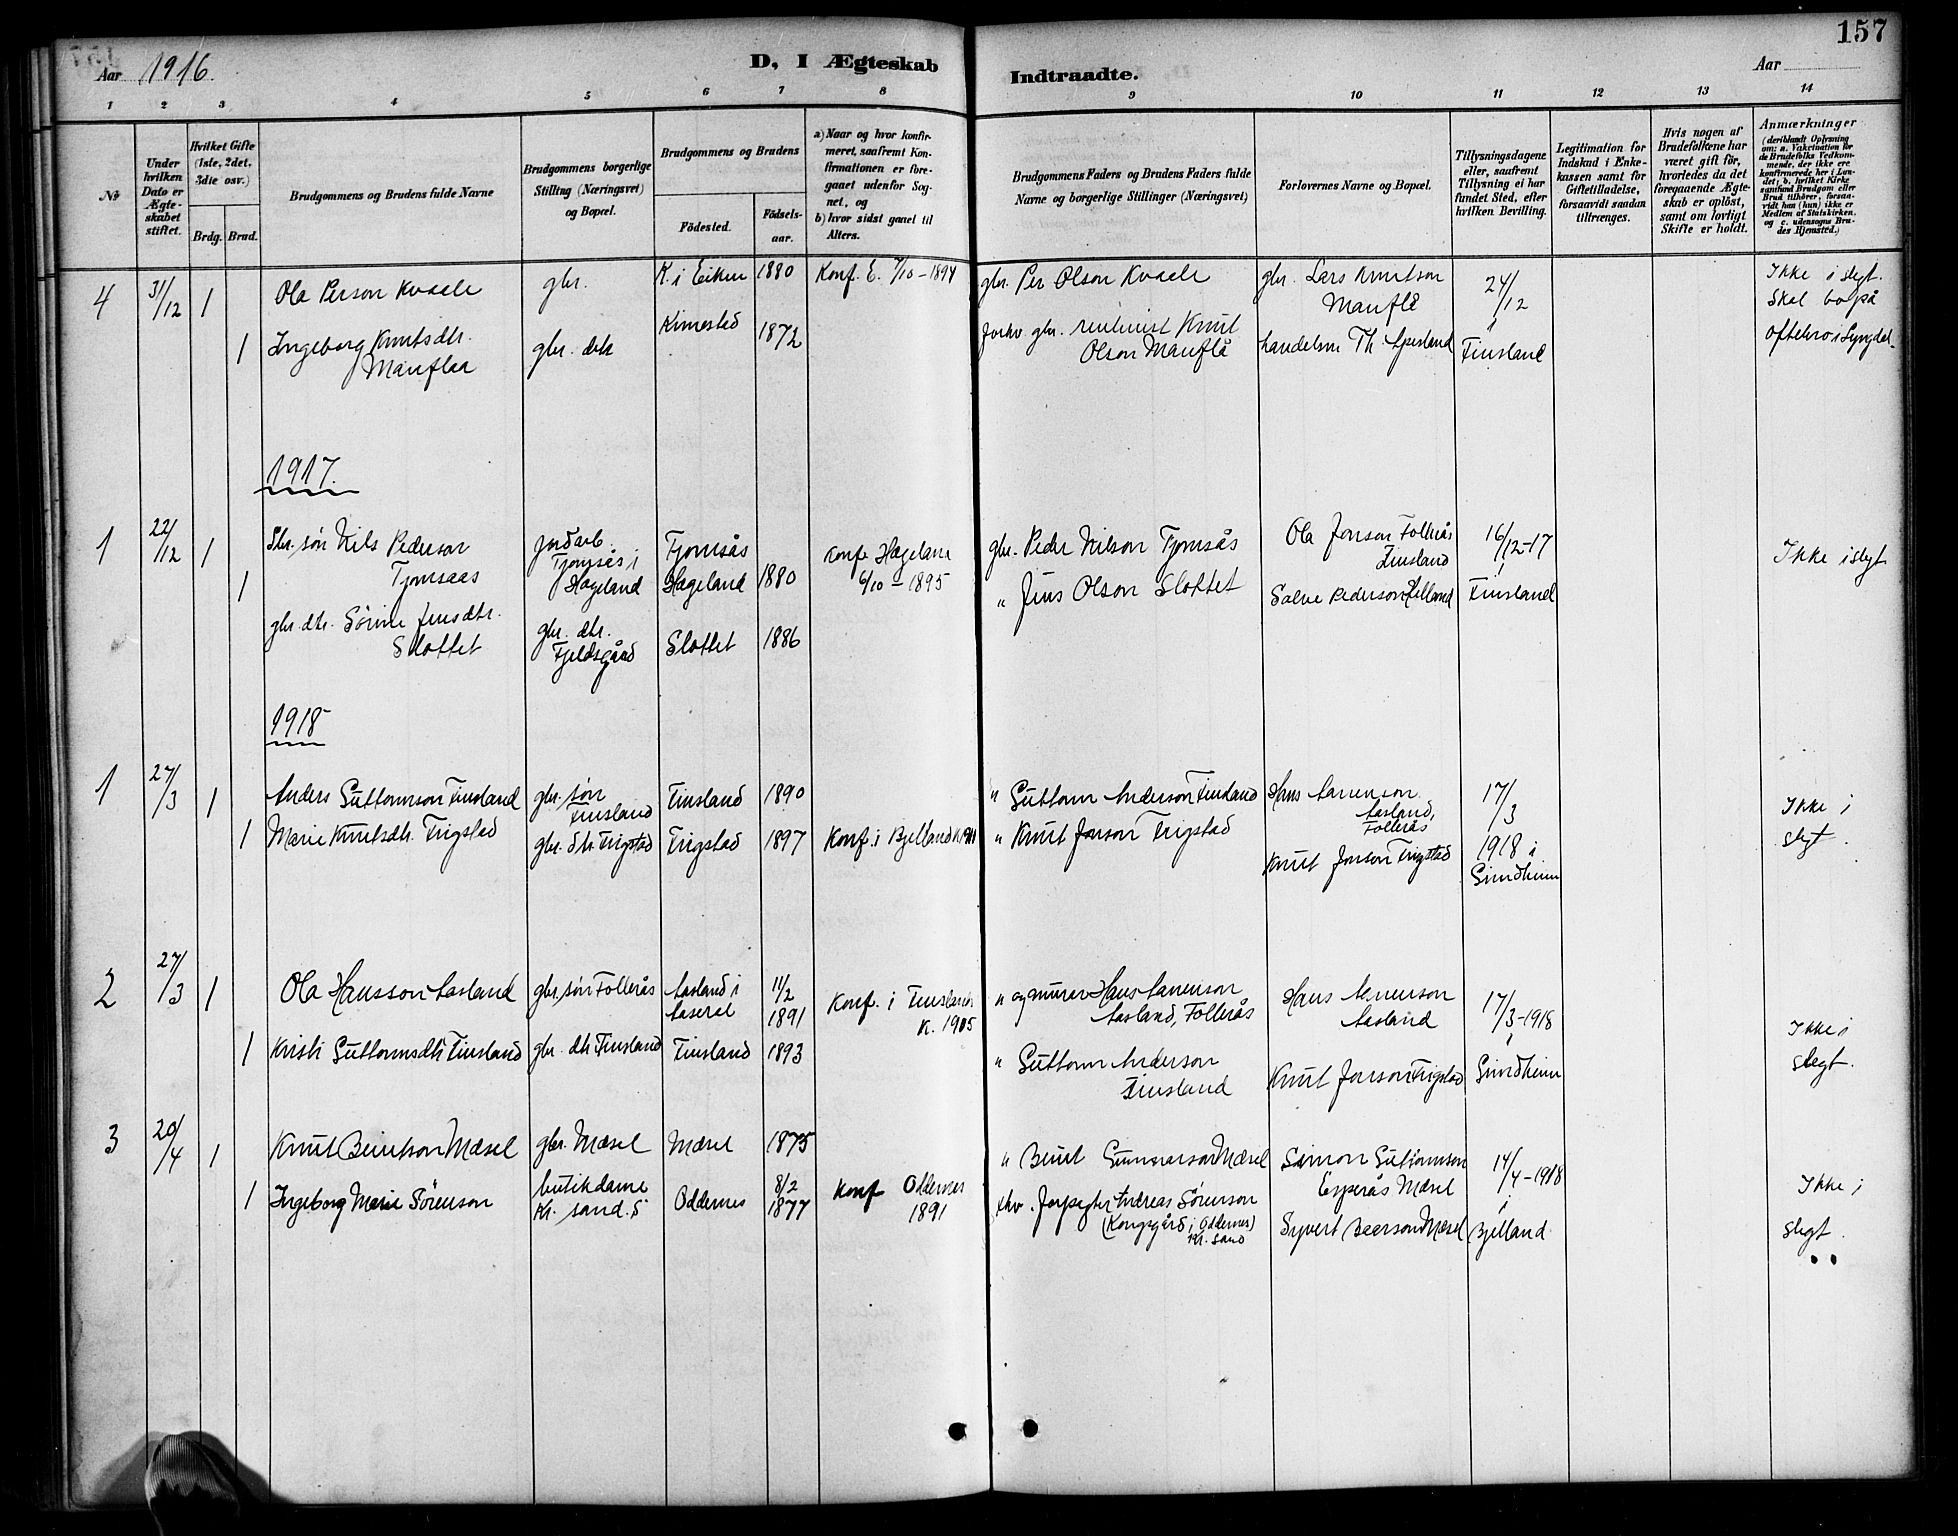 157
Aar 1916.
D, I Ægteskab Indtraadte.
Aar
1 2 3 4 5 6 7 8 9 10 11 12 13 14
№
Under hvilken Dato er Ægteskabet stiftet.
Hvilket Gifte (1ste, 2det, 3die osv.)
Brdg. Brud.
Brudgommens og Brudens fulde Navne
Brudgommens borgerlige Stilling (Næringsvei) og Bopæl.
Brudgommens og Brudens
Fødested.
Fødselsaar.
a) Naar og hvor konfirmeret, saafremt Konfirmationen er foregaaet udenfor Sognet, og
b) hvor sidst gaaet til Alters.
Brudgommens Faders og Brudens Faders fulde Navne og borgerlige Stillinger (Næringsvei)
Forlovernes Navne og Bopæl.
Tillysningsdagene eller, saafremt Tillysning ei har fundet Sted, efter hvilken Bevilling.
Legitimation for Indskud i Enkekassen samt for Giftetilladelse, forsaavidt saadan tiltrænges.
Hvis nogen af Brudefolkene har været gift før, hvorledes da det foregaaende Ægteskab er opløst, samt om lovligt Skifte er holdt.
Anmærkninger (deriblandt Oplysning om: a. Vakcination for de Brudefolks Vedkommende, der ikke ere konfirmerede her i Landet; b. hvilket Kirkesamfund Brudgom eller Brud tilhører, forsaavidt han (hun) ikke er Medlem af Statskirken, og c. udensogns Brudes Hjemsted.)
4 31/12 1 Ola Person Kvaale gbr. K. i Eiken 1880 Konf. E. 7/10-1894 gbr. Per Olson Kvaale gbr. Lars Knutson Mauflå 24/12 Ikke i slegt. Skal bo på
1 Ingeborg Knutsdtr. Mauflaa gbr. dtr. Kimestad 1872 forhv gbr. rentenist Knut Olson Mauflå handelsm Th. Spesland i Finsland Oftebro i Lyngdal
1917.
1 22/12 1 Gbr. søn Nils Pederson Tjomsaas jordarb. Tjomsås i Hageland Tjomsås Hageland 1880 Konf. Hægeland 6/10-1895 gbr. Peder Nilson Tjomsås Ola Jonson Follerås Finsland 16/12-17 Ikke i slegt
1 gbr. dtr. Sørine Jensdtr. Slottet gbr. dtr. Fjeldsgård Slottet 1886 " Jens Olson Slottet Salve Pederson Lilland i Finsland
1918
1 27/3 1 Anders Guttormson Finsland gbr. søn Finsland Finsland 1890 " Guttorm Anderson Finsland Hans Aanenson Aasland, Follerås 17/3 Ikke i
1 Marie Knutsdtr. Trigstad gbr. dtr Trigstad Trigstad 1897 Konf. i Bjelland K. 1911 " Knut Jonson Trigstad Knut Jonson Trigstad 1918 i Grindheim slegt.
2 27/3 1 Ola Hansson Aasland gbr. søn Follerås Aasland i Aaseral 11/2 1891 Konf. i Finslands K. 1905 " og murer Hans Aanenson Aasland, Follerås Hans Aanenson Aasland 17/3-1918 Ikke i
1 Kristi Guttormsdtr Finsland gbr. dtr Finsland Finsland 1893 " Guttorm Anderson Finsland Knut Jonson Trigstad i Grindheim slegt.
3 20/4 1 Knut Beintson Mæsel gbr. Mæsel Mæsel 1875 " Beint Gunnarson Mæsel Simon Guttormson Esperås Mæsel 14/4-1918 Ikke i
1 Ingeborg Marie Sørenson butikdame Kr. sand. S Oddernes 8/2 1877 Konf Oddernes 1891 fhv. forpagter Andreas Sørenson (Kongsgård i Oddernes) Kr. sand Syvert Beerson Mæsel i Bjelland slegt.